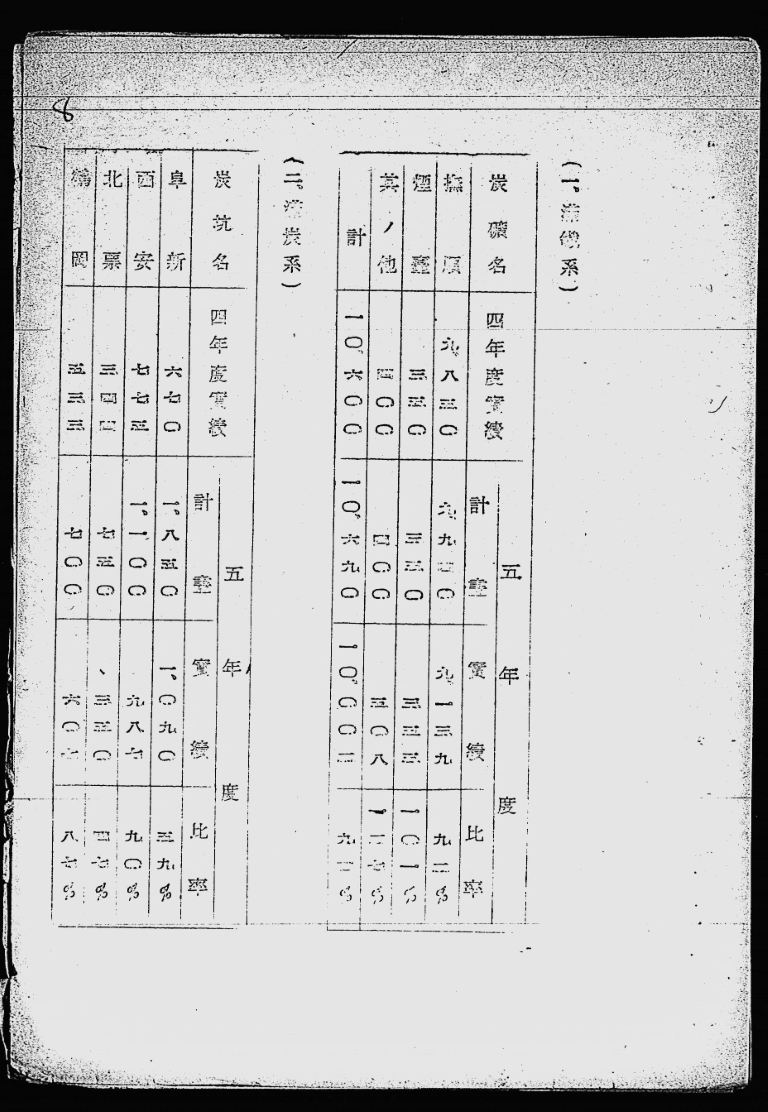 8
(一、滿鐵系)
炭礦名 四年度實績 五年度 計畫 實績 比率
撫順 九、八五〇 九、九四〇 九、一三九 九二%
煙臺 三五〇 三五〇 三五五 一〇一%
其ノ他 四〇〇 四〇〇 五〇八 一二七%
計 一〇、六〇〇 一〇、六九〇 一〇、〇〇二 九二%
(二、滿炭系)
炭坑名 四年度實績 五年度 計畫 實績 比率
阜新 六七〇 一、八五〇 一、〇九〇 五九%
西安 七七三 一、一〇〇 九八七 九〇%
北票 三四四 七五〇 、三五〇 四七%
鶴岡 五三三 七〇〇 六〇七 八七%